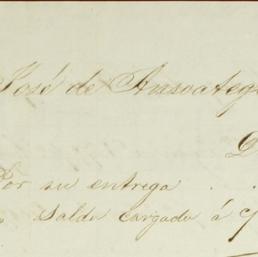 José de Ansoateg
D
Por su entrega . .
Saldo cargado á